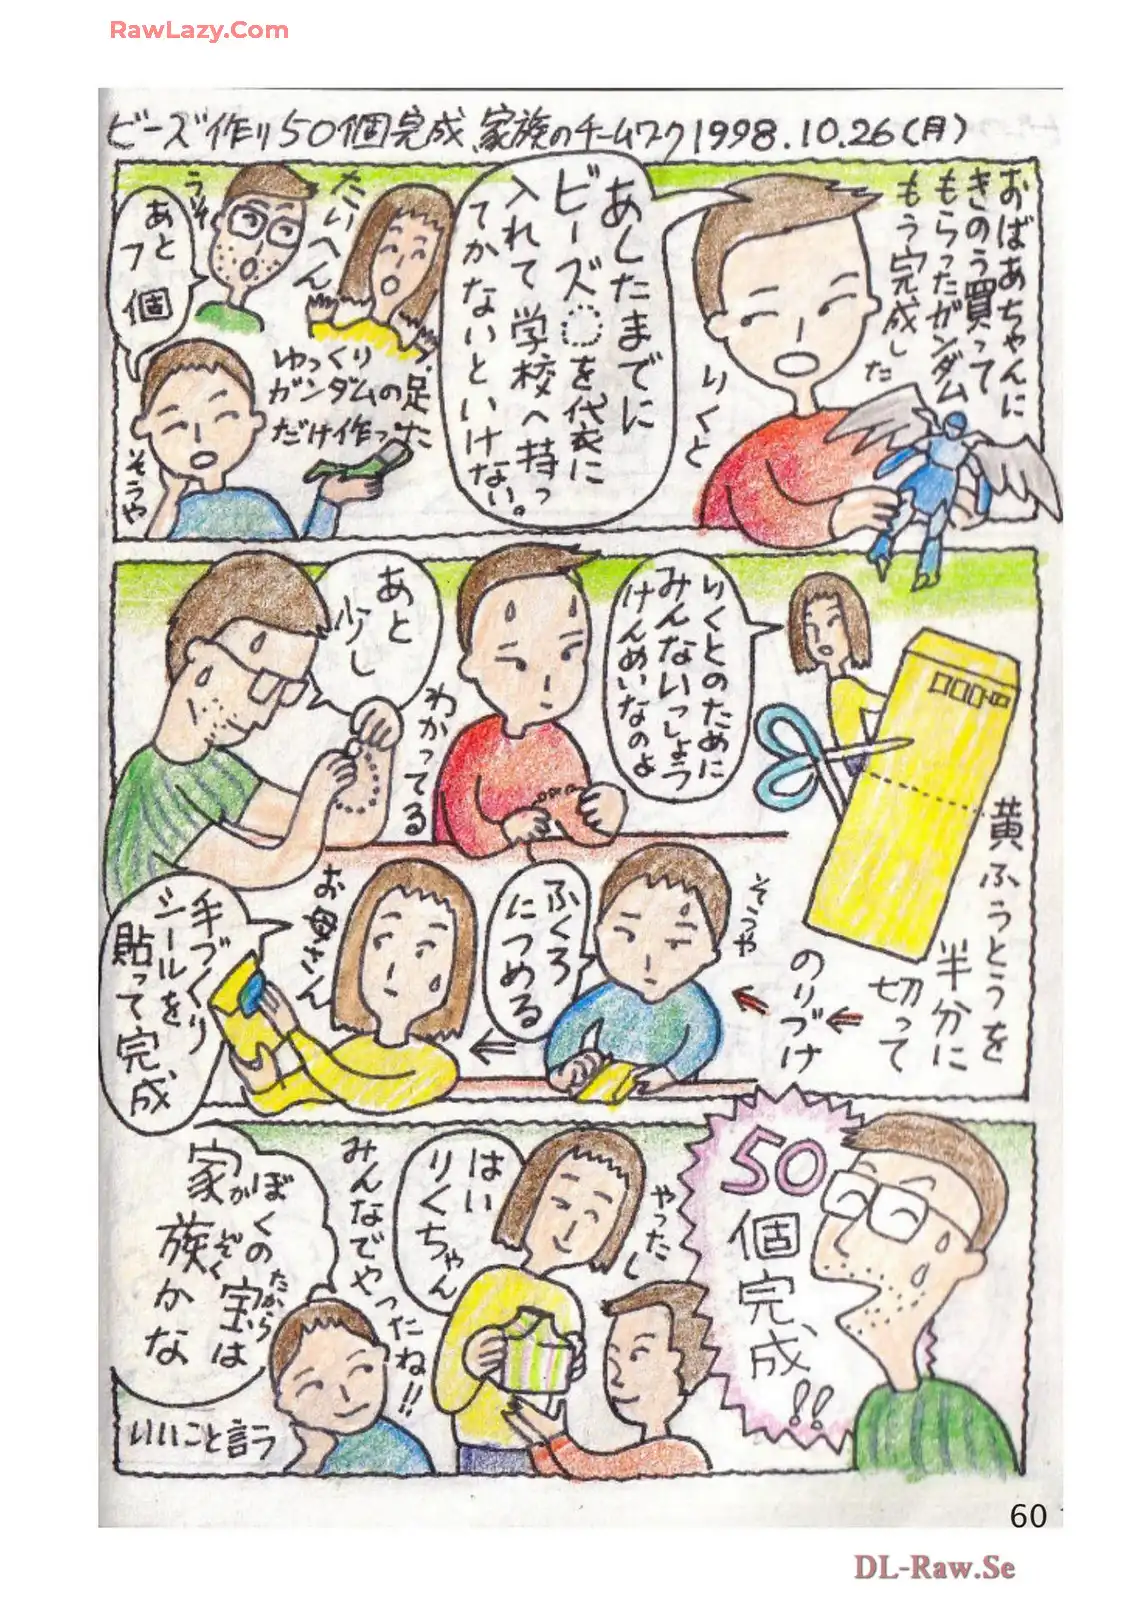 RawLazy.Com
ビーズ作り50個完成、家族のチームワク1998.10.26(月)
おばあちゃんに
きのう買って
もらったガンダム
もう完成した
りくと
あしたまでに
ビーズ◌を代衣に
入れて学校へ持っ
てかないといけない。
たいへん
うそ
あと
7個
ゆっくり
ガンダムの足
だけ作った
そうや
りくとのために
みんないっしょう
けんめいなのよ
わかってる
あと
少し
黄ふうとうを
半分に
切って
のりづけ
そうや
ふくろ
につめる
お母さん
手づくり
シールを
貼って完成
50
個
完
成!!
やったし
はい
りくちゃん
みんなでや
ったね!!
ぼくの宝は
たから
家族かな
かぞく
いいこと言う
60
DL-Raw.Se